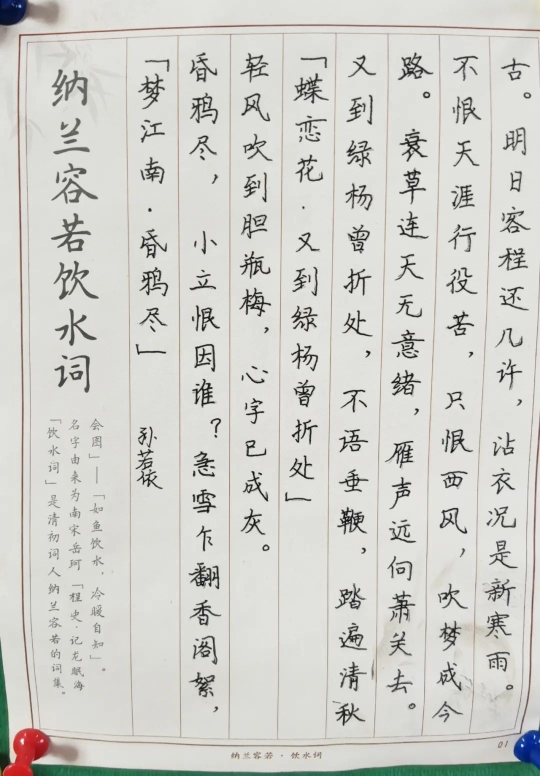 纳兰容若饮水词
「饮水词」是清初词人纳兰容若的词集。
名字由来为南宋岳珂「程史·记龙眠海
会图」——「如鱼饮水,冷暖自知」。
「梦江南·昏鸦尽」
孙若依
昏鸦尽,小立恨因谁?急雪乍翻香阁絮,
轻风吹到胆瓶梅,心字已成灰。
「蝶恋花·又到绿杨曾折处」
又到绿杨曾折处,不语垂鞭,踏遍清秋
路。衰草连天无意绪,雁声远向萧关去。
不恨天涯行役苦,只恨西风,吹梦成今
古。明日客程还几许,沾衣况是新寒雨。
纳兰容若·饮水词
01